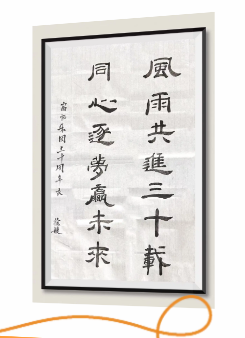 風雨共進三十載
同心逐夢贏未來